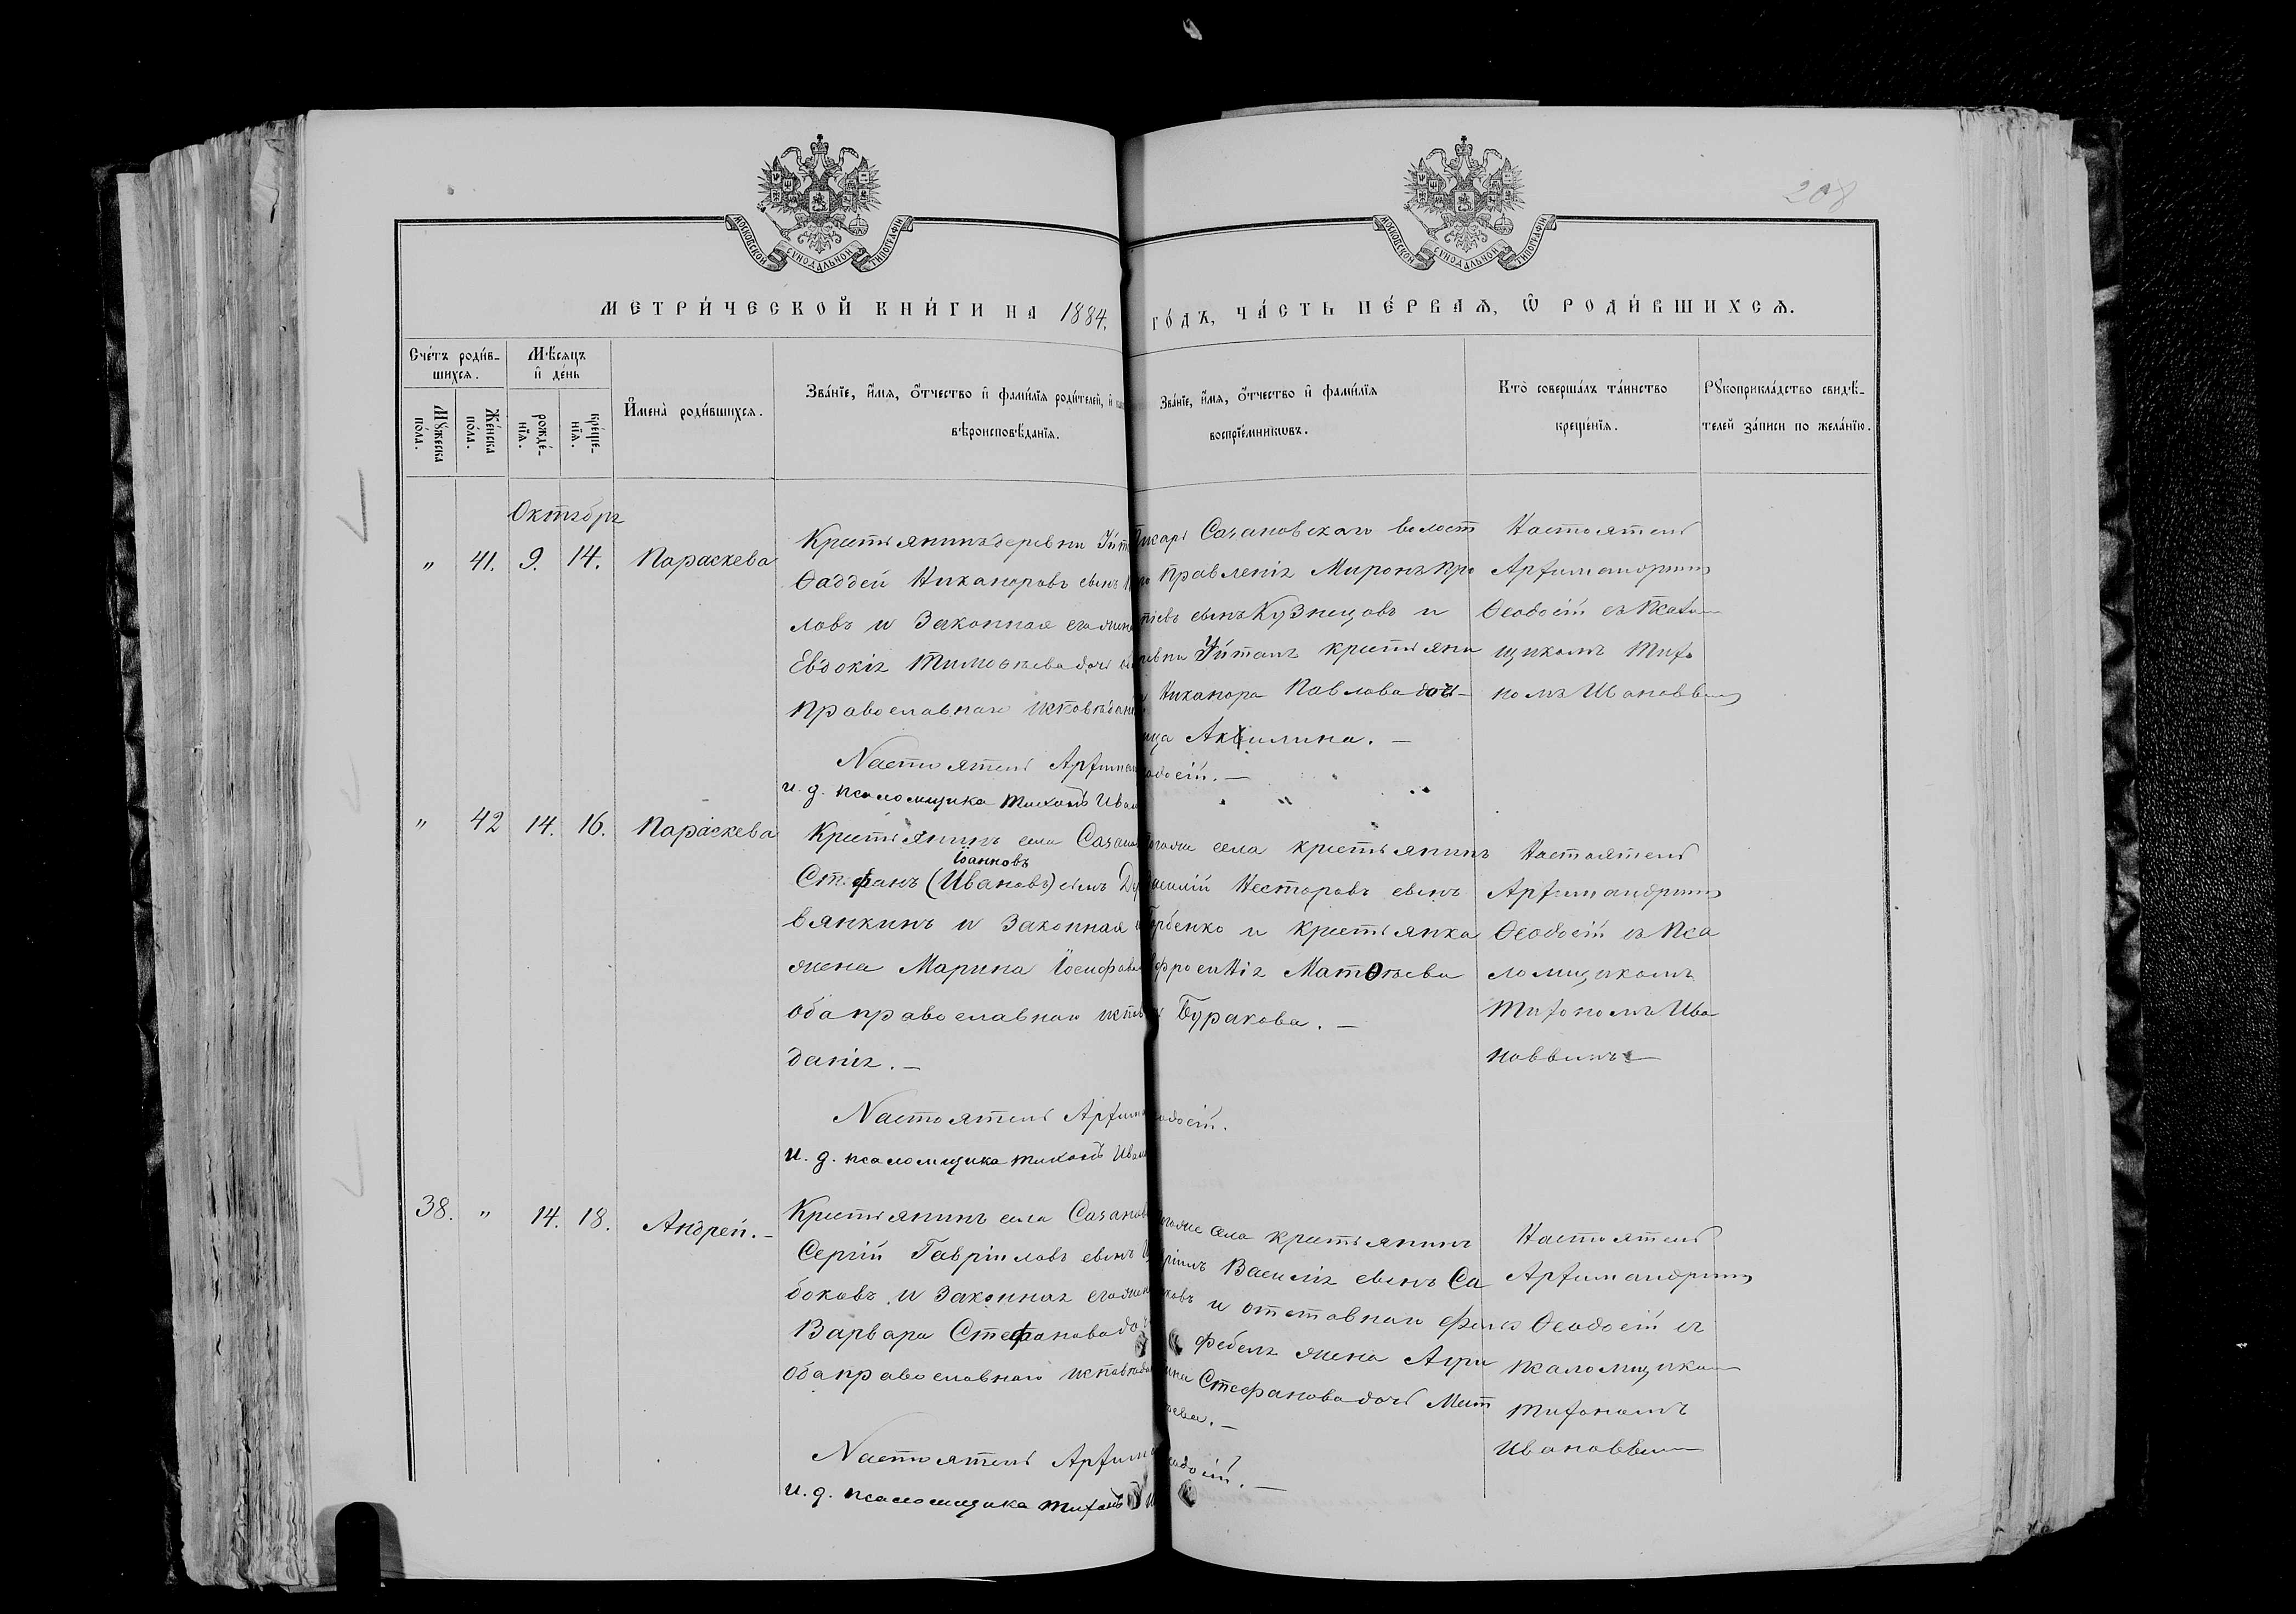 208
МОСКОВСКОЙ СУНОДАЛЬНОЙ ТИПОГРАФІИ
МОСКОВСКОЙ СУНОДАЛЬНОЙ ТИПОГРАФІИ
МЕТРИ́ЧЕСКОЙ КНИ́ГИ НА 1884.
ГО́ДЪ, ЧА́СТЬ ПЕ́РВАѦ, Ѿ РОДИ́ВШИХСѦ.
Сче́тъ роди́в-
шихсѧ.
Мꙋ́жеска
по́ла.
Же́нска
по́ла.
Мѣ́сѧцъ
и҆ де́нь
рожде́-
нїѧ.
креще́-
нїѧ.
И҆мена̀ роди́вшихсѧ.
Зва́нїе, и҆́мѧ, ѻ҆́тчество и҆ фами́лїѧ роди́телей, и҆
вѣроисповѣ́данїѧ.
Зва́нїе, и҆́мѧ, ѻ҆́тчество и҆ фами́лїѧ
воспрїе́мникѡвъ.
Кто̀ соверша́лъ та́инство
креще́нїѧ.
Рꙋкоприкла́дство свидѣ́-
телей за́писи по жела́нїю.
Октябрь
" 41. 9. 14. Параскева
Крестьянинъ деревни
Ѳаддей Никаноровъ сынъ
ловъ и законная его жена
Евдокія Тимоѳѣева дочь
православнаго исповѣдані
Настоятель Архим
и. д. псаломщика Тихонъ Иван
Сазановскаго волост
правленія Миронъ Про
сынъ Кузнецовъ и
крестьяни
Никанора Павлова дочь-
Акилина. –
одосій. –
Настоятель
Архимандритъ
Ѳеодосій съ псалом
щикомъ Тихо
номъ Ивановымъ
" 42 14. 16. Параскева
Крестьянинъ села Сазанов
Іоанновъ
Стефанъ (Ивановъ) сынъ
вянкинъ и законная
жена Марина Іосифова
оба православнаго исповѣ
данія. –
Настоятель Архим
и. д. псаломщика Тихонъ Иван
села крестьянинъ
Василій Несторовъ сынъ
Горбенко и крестьянка
фросинія Матѳѣева
Буракова. –
одосій.
Настоятель
Архимандритъ
Ѳеодосій съ пса
ломщикомъ
Тихономъ Ива
новымъ –
38. " 14. 18. Андрей. –
Крестьянинъ села Сазанов
Сергій Гавріиловъ сынъ
боковъ и законная его жена
Варвара Стефанова
оба православнаго исповѣда
Настоятель Архим
и. д. псаломщика Тихонъ
села крестьянинъ
Василія сынъ Са
и отставнаго фель
фебеля жена Агри
Стефанова дочь Мат
ѣева. –
одосій. –
Настоятель
Архимандритъ
Ѳеодосій съ
псаломщиком
Тихономъ
Ивановым